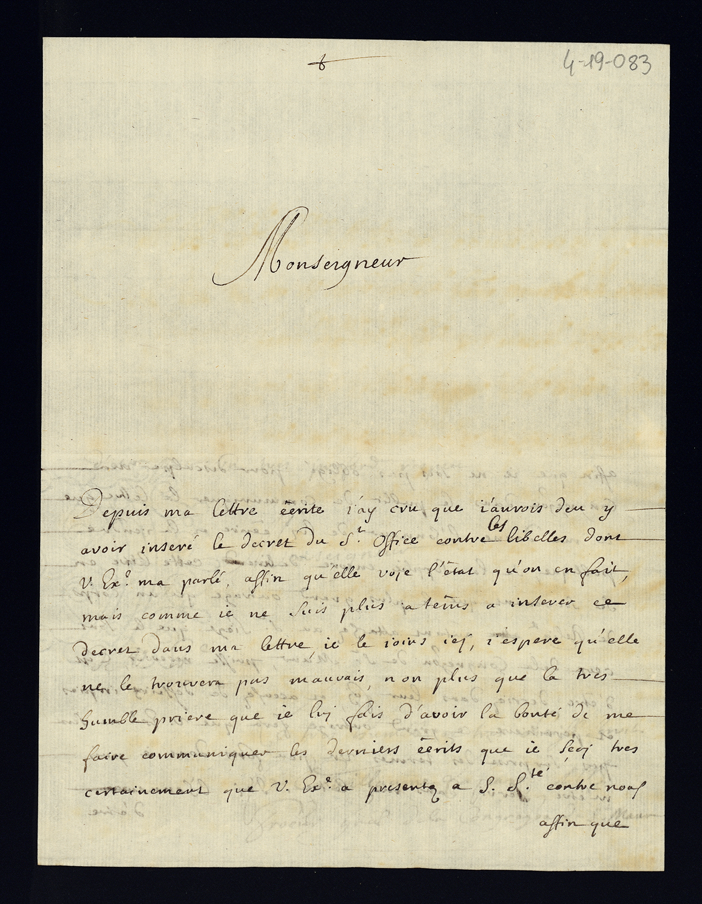 4-19-083
Monseigneur
Depuis ma lettre écrite i'ay cru que i'aurois deu y
avoir inseré le decret du St. Office contre les libelles dont
V. Exe. ma parlé, affin qu'elle voje l'état qu'on en fait,
mais comme ie ne suis plus a tems a inserer ce
decret dans ma lettre, ie le ioins icj, i'espere qu'elle
ne le trouvera pas mauvais, non plus que la tres
humble priere que ie luj fais d'avoir la bonté de me
faire communiquer les derniers écrits que ie sçaj tres
certainement que V. Exe. a presentez a S. Sté. contre nous
affin que